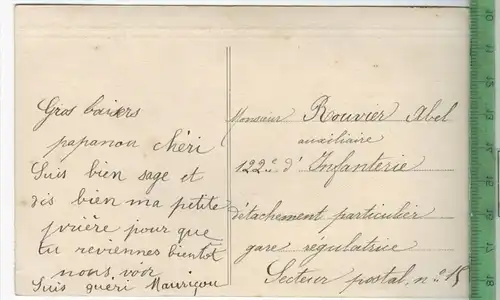 Gros baisers
papanou chéri
Suis bien sage et
dis bien ma petite
prière pour que
tu reviennes bientôt
nous voir
Suis guéri Mauriçou
Monsieur Rouvier Abel
auxiliaire
122e d'Infanterie
détachement particulier
gare régulatrice
Secteur postal n° 15